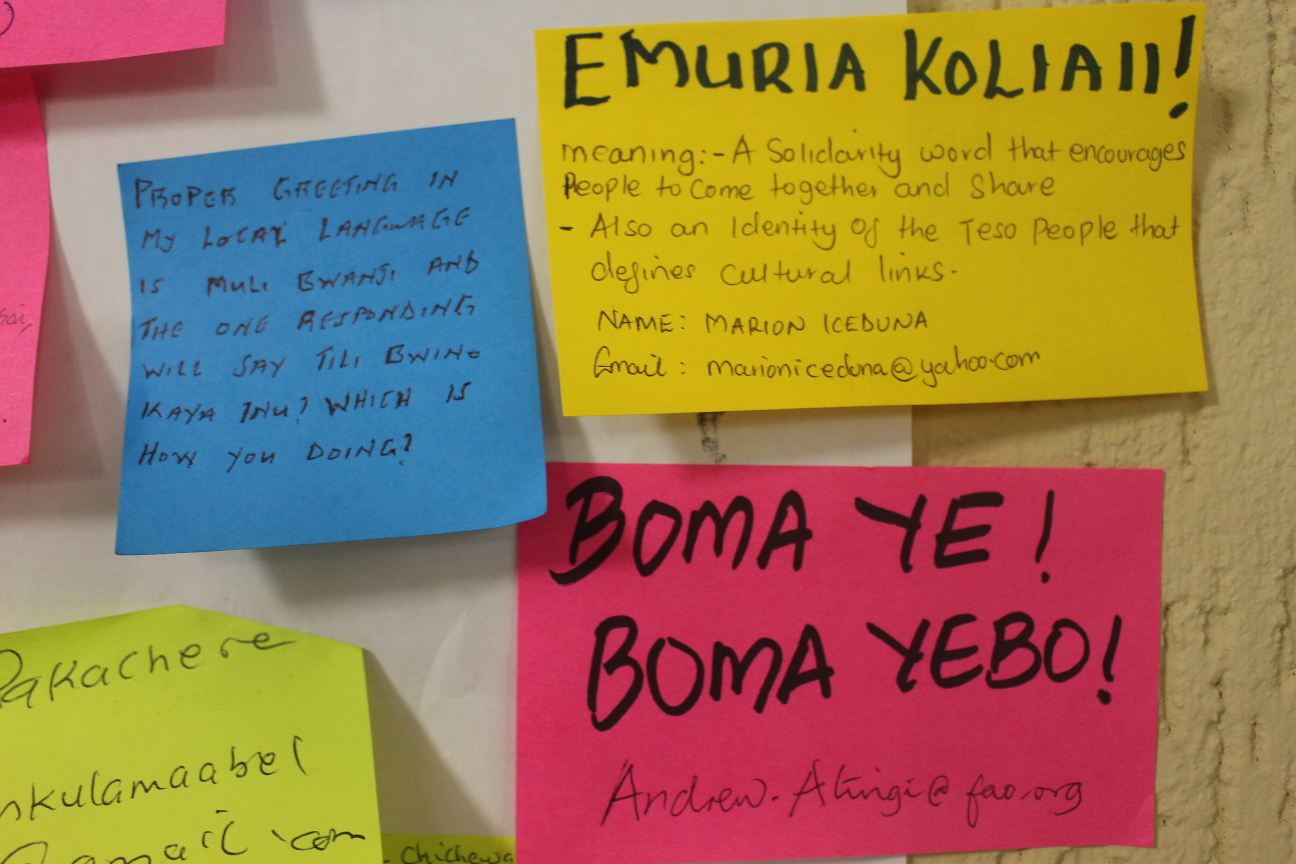 PROPER GREETING IN
MY LOCAL LANGUAGE
IS MULI BWANJI AND
THE ONE RESPONDING
WILL SAY TILI BWINO
KAYA INU? WHICH IS
HOW YOU DOING?
EMURIA KOLIAII!
meaning:- A Solidarity word that encourages
People to Come together and Share
- Also an Identity Of the Teso People that
defines cultural links.
NAME: MARION ICEDUNA
Email: marioniceduna@yahoo.com
BOMA YE!
BOMA YEBO!
Andrew.Atingi@fao.org
Pakachere
nkulamaabel
@gmail.com
- Chichewa